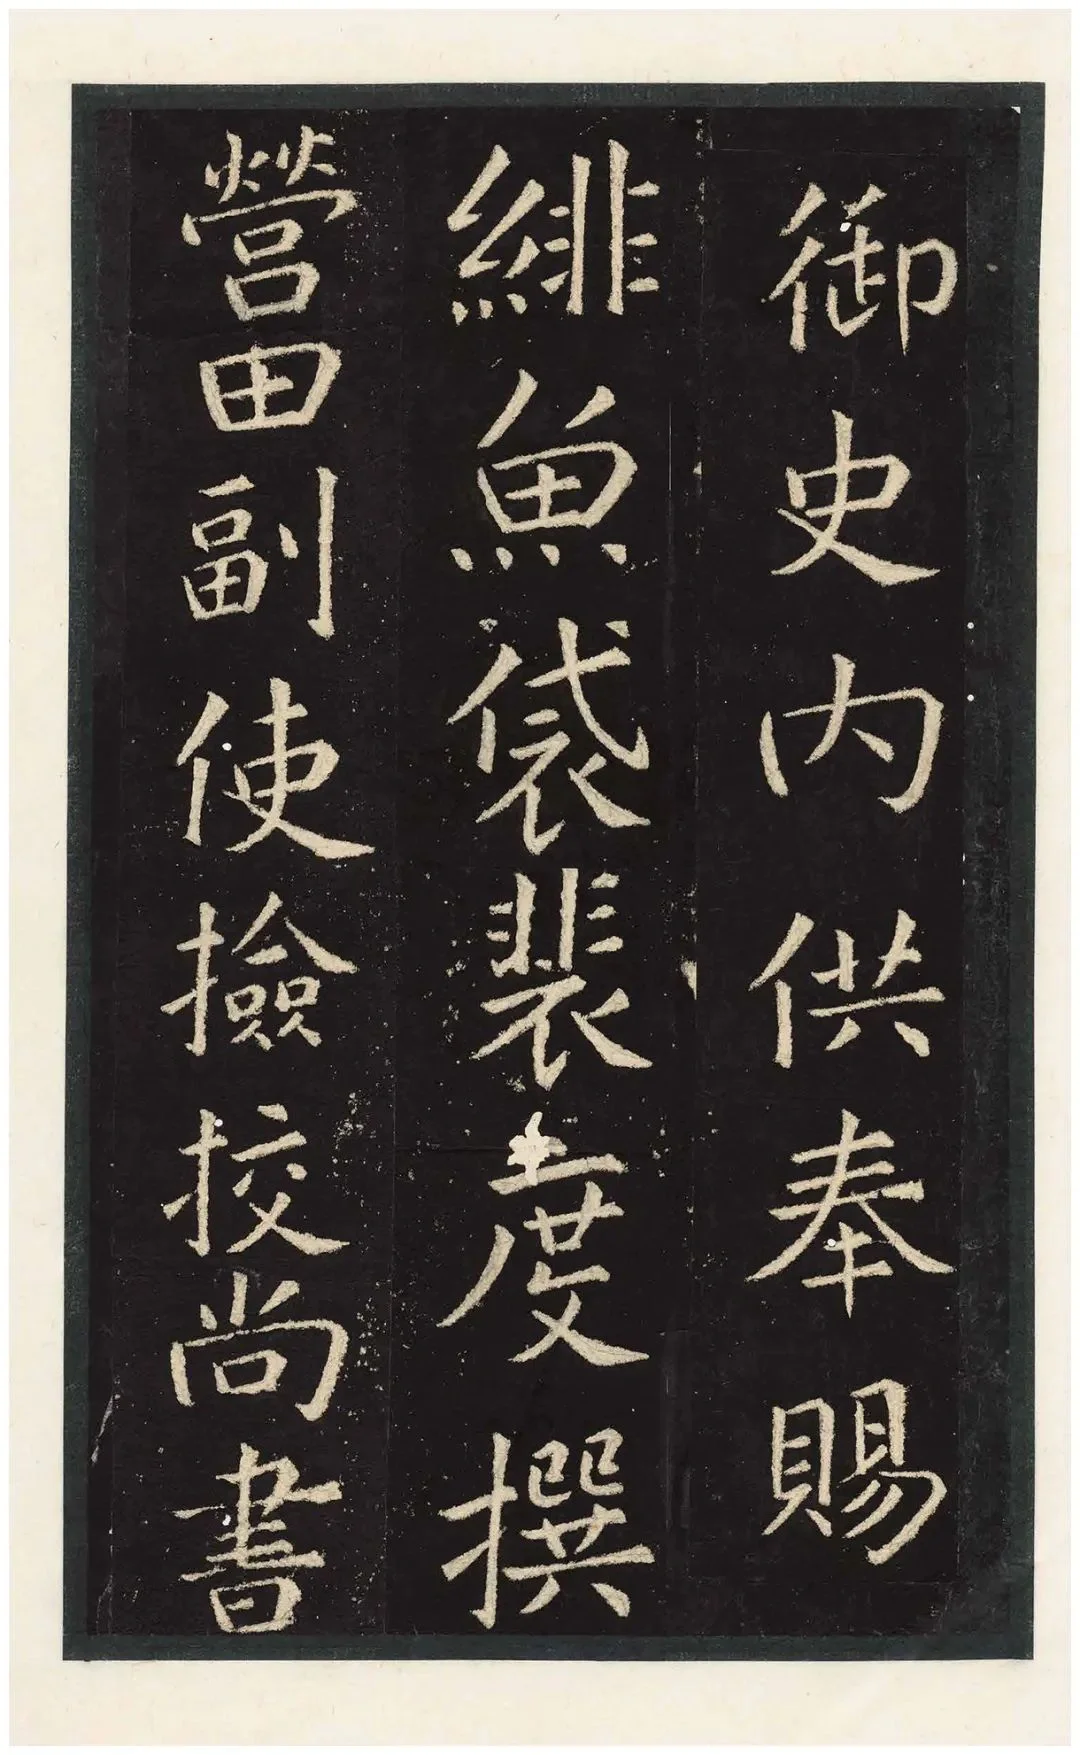 御史内供奉賜
緋魚袋裴度撰
營田副使撿挍尚書